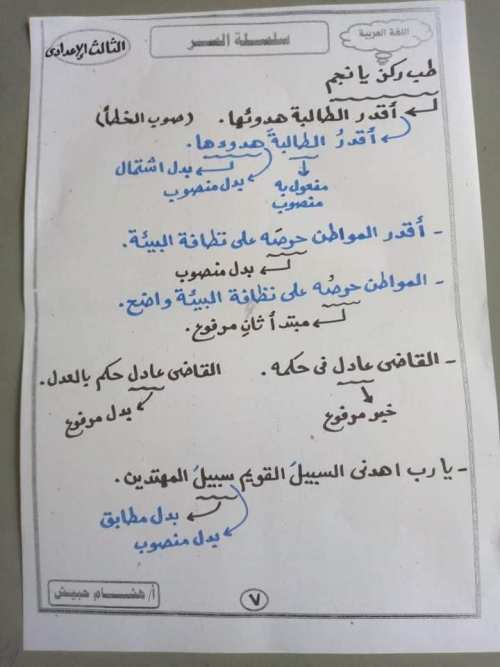 اللغة العربية
سلسلة السر
الثالث الإعدادى
طب ركن يا نجم
أقدر الطالبة هدوئها. (صوب الخطأ)
أقدرُ الطالبةَ هدوءها.
بدل اشتمال
مفعول به منصوب
بدل منصوب
- أقدر المواطن حرصَه على نظافة البيئة.
بدل منصوب
- المواطن حرصُه على نظافة البيئة واضح.
مبتدأ ثانٍ مرفوع.
- القاضى عادل فى حكمه. القاضى عادل حكم بالعدل.
خبر مرفوع
بدل مرفوع
- يا رب اهدنى السبيلَ القويم سبيلَ المهتدين.
بدل مطابق
بدل منصوب
٧
أ/ هشام حبيش